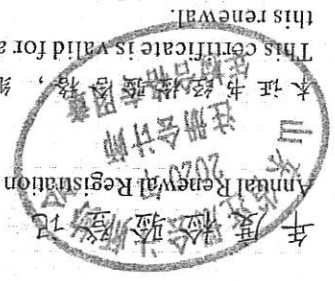 年度检验登记
Annual Renewal Registration
本证书经检验合格，继
This certificate is valid for a
this renewal.
山东
2020年
注册会计师